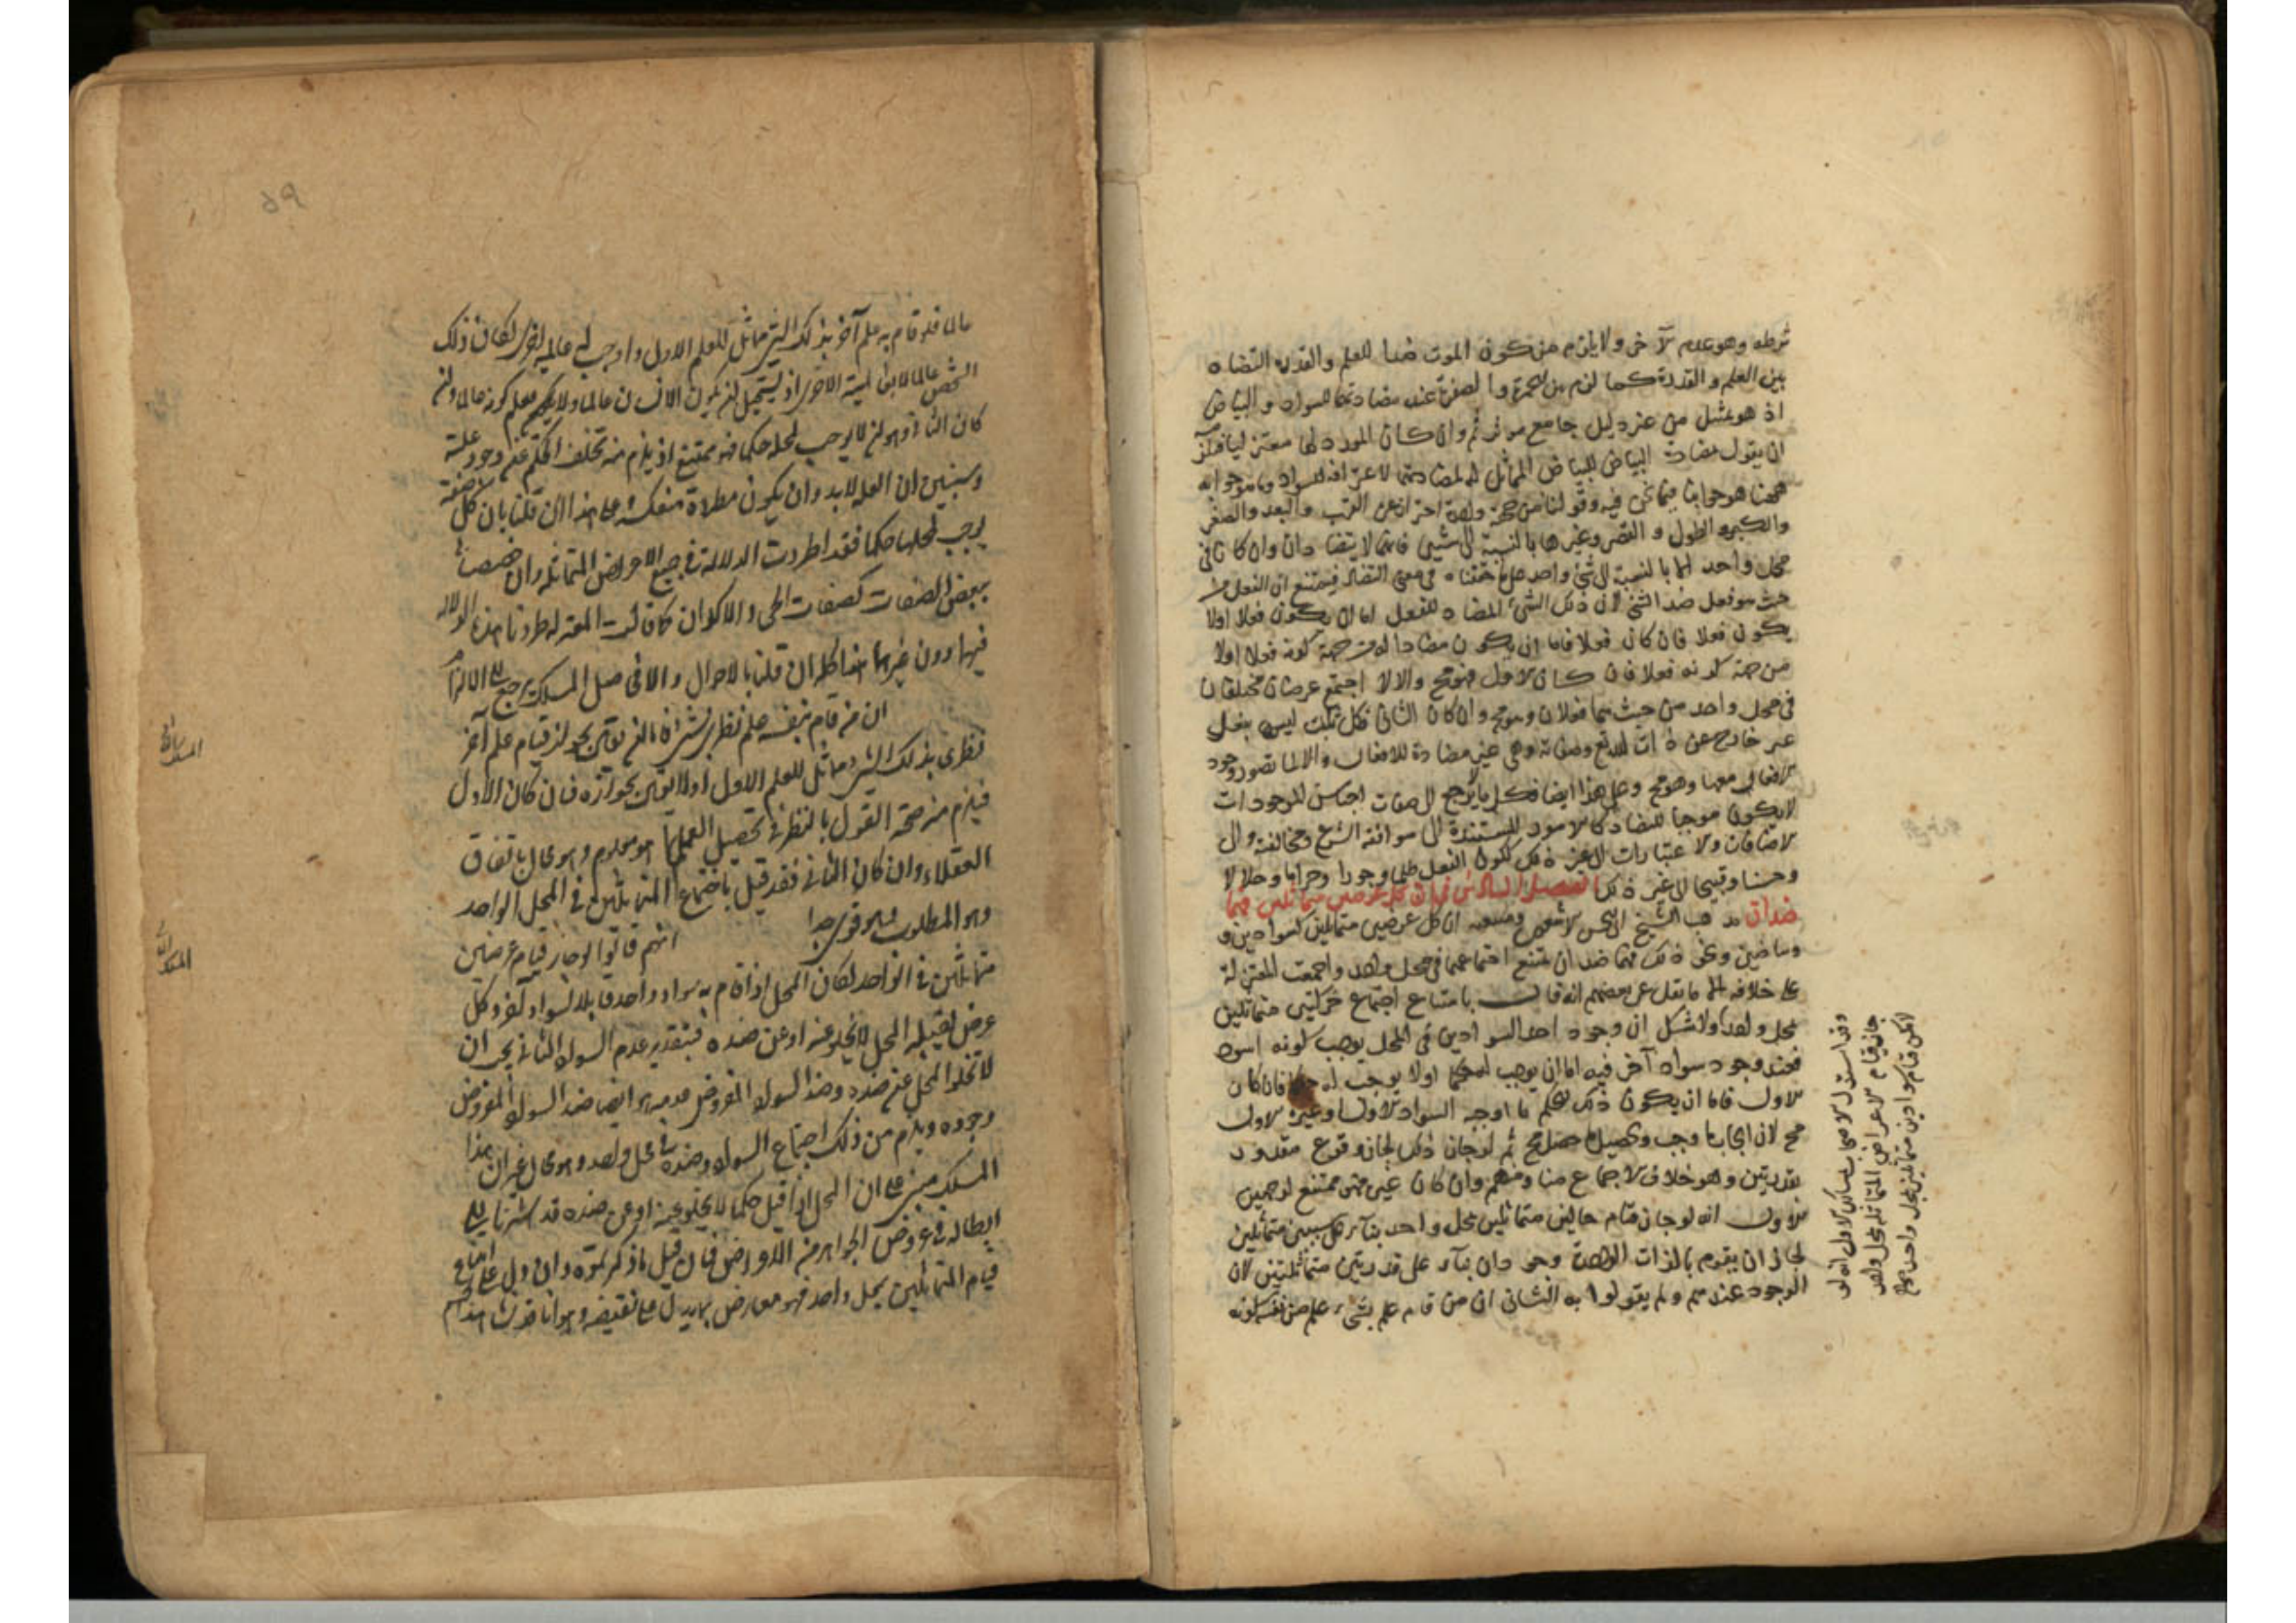 شرطه وهو عدم الآخر ولا يلزم من كون الموت ضدا للعلم والقدرة التضاد
بين العلم والقدرة كما لزم بين الحمرة والصفرة عند مضادتهما للسواد والبياض
اذ هو تمثيل من غير دليل جامع مؤثر ثم وان كان المورد لها معتزليا فله
ان يقول مضادة البياض للبياض المماثل له لمضادتهما لاعراف السواد وما هو جوابه
ههنا هو جوابنا فيما نحن فيه وقولنا من جهة واحدة احترازا عن القرب والبعد والصغر
والكبر والطول والقصر وغيرها بالنسبة الى شيئين فانهما لا يتضادان وان كانا في
محل واحد اما بالنسبة الى شيء واحد على ما حققناه في معنى التضاد فيمتنع ان الفعل من
حيث هو فعل ضد الشيء لان ذلك الشيء المضاد للفعل اما ان يكون فعلا اولا
يكون فعلا فان كان فعلا فاما ان يكون مضادا له من جهة كونه فعلا اولا
من جهة كونه فعلا فان كان الاول فهو مح والا لا اجتمع عرضان مختلفان
في محل واحد من حيث هما فعلان وهو مح وان كان الثاني فكل ما ليس بفعل
غير خارج عن ذات الله تع وصفاته وهي غير مضادة للافعال والا لما تصور وجود
الافعال معها وهو مح وعلى هذا ايضا فكل ما لا يرجع الى صفات اجناس الموجودات
لا يكون موجبا للتضاد كالامور المستندة الى موافقة الشرع ومخالفته والى
الاضافات والاعتبارات الى غير ذلك ككون الفعل ظلما وجورا وحراما وحلالا
وحسنا وقبيحا الى غير ذلك الفصل السادس في ان كل عرضين متماثلين فهما
ضدان مذهب الشيخ ابي الحسن الاشعري ومتبعيه ان كل عرضين متماثلين كسوادين و
وبياضين ونحو ذلك فهما ضدان يمتنع اجتماعهما في محل واحد واجمعت المعتزلة
على خلافه الا ما نقل عن بعضهم انه قال بامتناع اجتماع حركتين متماثلتين
بمحل واحد ولا شك ان وجود احد السوادين في المحل يوجب كونه اسود
فعند وجود سواد آخر فيه اما ان يوجب له حكما اولا يوجب له حكما فان كان
الاول فاما ان يكون ذلك الحكم ما اوجبه السواد الاول او غيره الاول
مح لان ايجاب ما وجب وتحصيل ما حصل مح ثم لو جاز ذلك لجاز وقوع مقدور
بقدرتين وهو خلاف الاجماع منا ومنهم وان كان غيره فهو ممتنع لوجهين
الاول انه لو جاز قيام حالين متماثلين بمحل واحد بناء على سببين متماثلين
لجاز ان يقوم بالذات الواحدة وجودان بناء على قدرتين متماثلتين لان
الوجود عندهم ولم يقولوا به الثاني ان من قام علم بشيء علم من نفسه كونه
وقد استدل الاصحاب بمسالك الاول انه لو
جاز قيام الاعراض المتماثلة بمحل واحد
لامكن قيام سوادين متماثلين بمحل واحد وهو مح
٥٩
عالما فلو قام به علم آخر بذلك الشيء مماثل للعلم الاول واوجب له عالمية اخرى لكان ذلك
الشخص عالما لا بعالمية الاخرى اذ يستحيل ان يكون الانسان عالما ولا يكون يعلم كونه عالما وان
كان الثاني وهو ان لا يوجب لمحله حكما فهو ممتنع اذ يلزم منه تخلف الحكم عند وجود علته
وسنبين ان العلة لا بد وان يكون مطردة منعكسة على هذا ان قلنا بان كل صفة
يوجب لمحلها حكما فقد اطردت الدلالة في جميع الاعراض المتماثلة وان خصصنا
ببعض الصفات كصفات الحي والاكوان كما قالت المعتزلة طردنا هذه الدلالة
فيها دون غيرها هذا كله ان قلنا بالاحوال والا فحاصل المسلك يرجع الى الالزام
المسلك الثاني
ان من قام بنفسه علم نظري بشيء فاما ان يوقن بجواز قيام علم آخر
نظري بذلك الشيء مماثل للعلم الاول اولا يوقن بجوازه فان كان الاول
فيلزم منه صحة القول بالنظر في تحصيل العلم بما هو معلوم وهو محال باتفاق
العقلاء وان كان الثاني فقد قيل بامتناع اجتماع المتماثلين في المحل الواحد
وهو المطلوب وهو قوي جدا
المسلك الثالث
انهم قالوا لو جاز قيام عرضين
متماثلين في الواحد لكان المحل اذا قام به سواد واحد قابلا لسواد آخر وكل
عرض يقبله المحل لا يخلو عنه او عن ضده فبتقدير عدم السواد الثاني يجب ان
لا تخلوا المحل عن ضده وضد السواد المفروض عدمه هو ايضا ضد السواد المفروض
وجوده ويلزم من ذلك اجتماع السواد وضده في محل واحد وهو محال غير ان هذا
المسلك مبني على ان المحل اذا قبل حكما لا يخلو عنه او عن ضده قد اشرنا الى
ابطاله في عروض الجواهر من الاعراض فان قيل ما ذكرتموه وان دل على امتناع
قيام المتماثلين بمحل واحد فهو معارض بما يدل على نقيضه وهو انا قد نشاهد